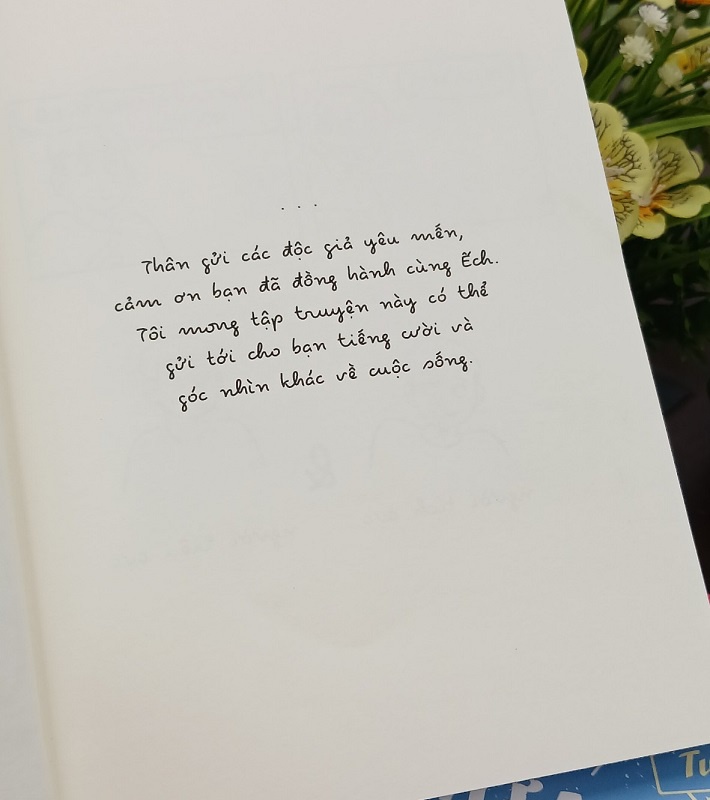 . . .
Thân gửi các độc giả yêu mến,
cảm ơn bạn đã đồng hành cùng Ếch.
Tôi mong tập truyện này có thể
gửi tới cho bạn tiếng cười và
góc nhìn khác về cuộc sống.
Tu